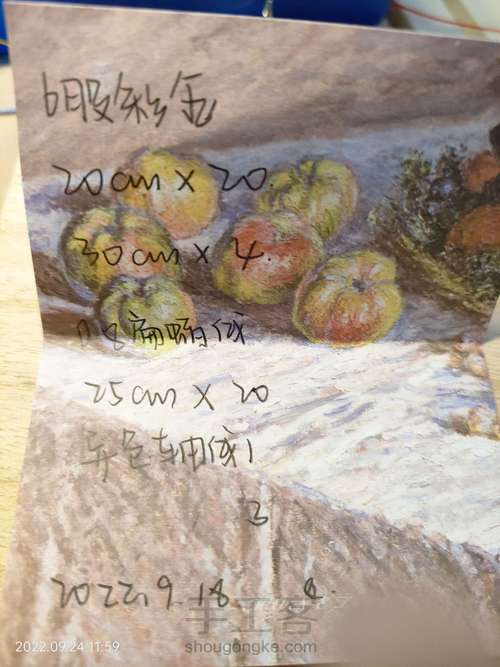 6股彩金
20cm×20.
30cm×4.
0.8扁蜡线
25cm×20
异色轴线1
3
2022.9.18
2022.09.24 11:59
手工客
shougongke.com